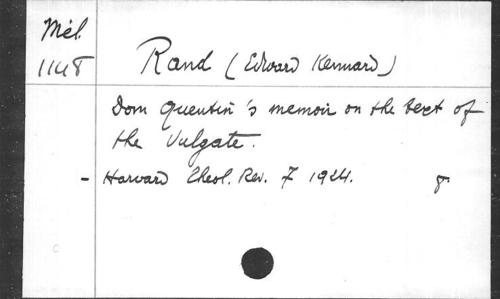 Mél.
1148
Rand (Edward Kennard)
Dom Quentin's memoir on the text of
the Vulgate.
- Harvard Theol. Rev. 7 1924. 8.